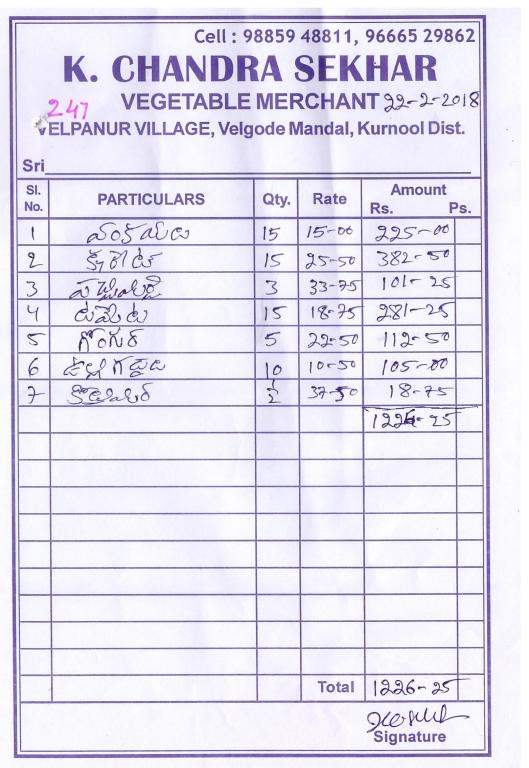 Cell : 98859 48811, 96665 29862
K. CHANDRA SEKHAR
247 VEGETABLE MERCHANT 22-2-2018
VELPANUR VILLAGE, Velgode Mandal, Kurnool Dist.
Sri
Sl. No. PARTICULARS Qty. Rate Amount Rs. Ps.
1 వంకాయలు 15 15-00 225-00
2 క్యారెట్ 15 25-50 382-50
3 పచ్చిమిర్చి 3 33-75 101-25
4 టమేట 15 18-75 281-25
5 గోంగుర 5 22-50 112-50
6 ఉల్లిగడ్డలు 10 10-50 105-00
7 1/2 37-50 18-75
1226-25
Total 1226-25
Signature